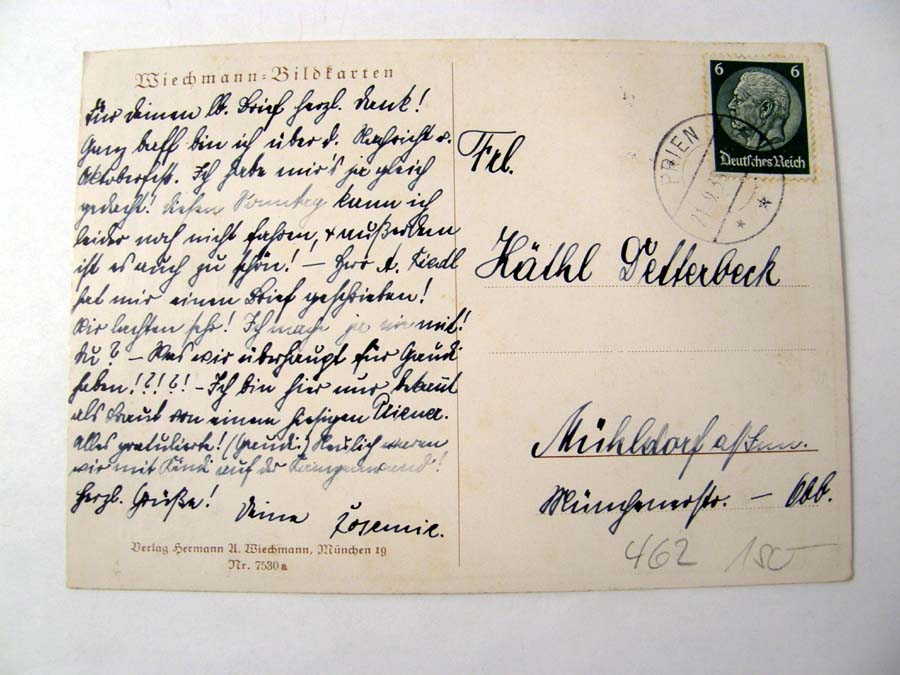 Wiechmann-Bildkarten
Für Deinen lb. Brief herzl. Dank!
Ganz baff bin ich über d. Nachricht v.
Oktoberfest. Ich habe mir's ja gleich
gedacht! Diesen Sonntag kann ich
leider noch nicht fahren, & außerdem
ist es auch zu schön! – Herr A.
hat mir einen Brief geschrieben!
Wir lachten sehr! Ich mache ja nie mit!
Du? – Was wir überhaupt für Gaudi
haben!?!?! – Ich bin hier nur bekannt
als Braut von einem hiesigen Priener.
Alles gratulierte! (Gaudi!) Neulich waren
wir mit auf der Kampenwand!
Herzl. Grüße!
Deine Rosemie.
Verlag Hermann A. Wiechmann, München 19
Nr. 7530a
6 6
Deutsches Reich
PRIEN
21.9.3
Frl.
Käthl Detterbeck
Mühldorf a/Inn.
Münchenerstr. – Obb.
462 150